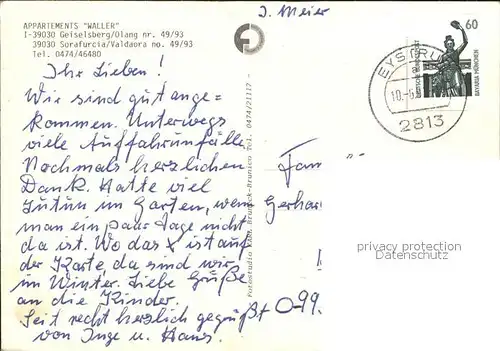 APPARTEMENTS "WALLER"
I-39030 Geiselsberg/Olang nr. 49/93
39030 Sorafurcia/Valdaora no. 49/93
Tel. 0474/46480
J. Meier
60
DEUTSCHE BUNDESPOST
BAVARIA MÜNCHEN
EYSTRUP
10.-6.
2813
Ihr Lieben!
Wir sind gut ange=
kommen. Unterwegs
viele Auffahrunfälle
Nochmals herzlichen
Dank. Hatte viel
zutun im Garten, wenn
man ein paar Tage nicht
da ist. Wo das X ist auf
der Karte, da sind wir
im Winter. Liebe Grüße
an die Kinder.
Seit recht herzlich gegrüßt
von Inge u. Hans.
Fotostudio Bruneck-Brunico Tel. 0474/21117
Fam
Gerhar
O-99
privacy protection
Datenschutz